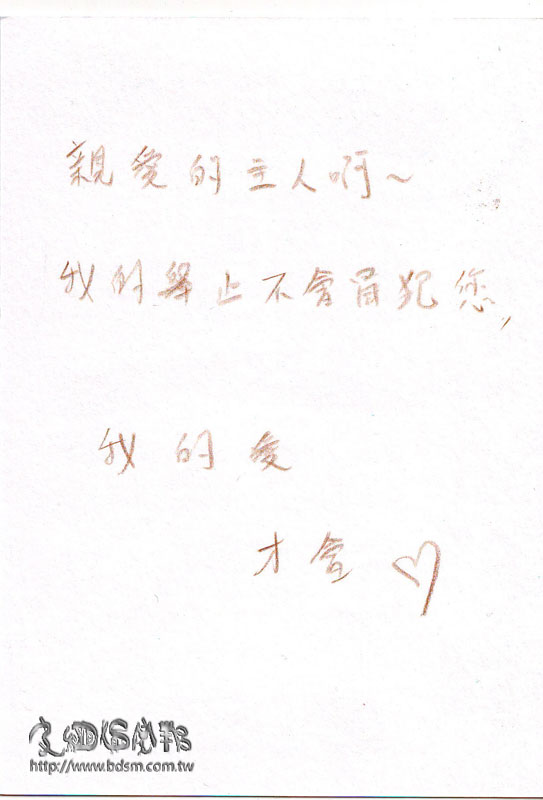 親愛的主人啊~
我的舉止不會冒犯您,
我的愛
才會♡
http://www.bdsm.com.tw